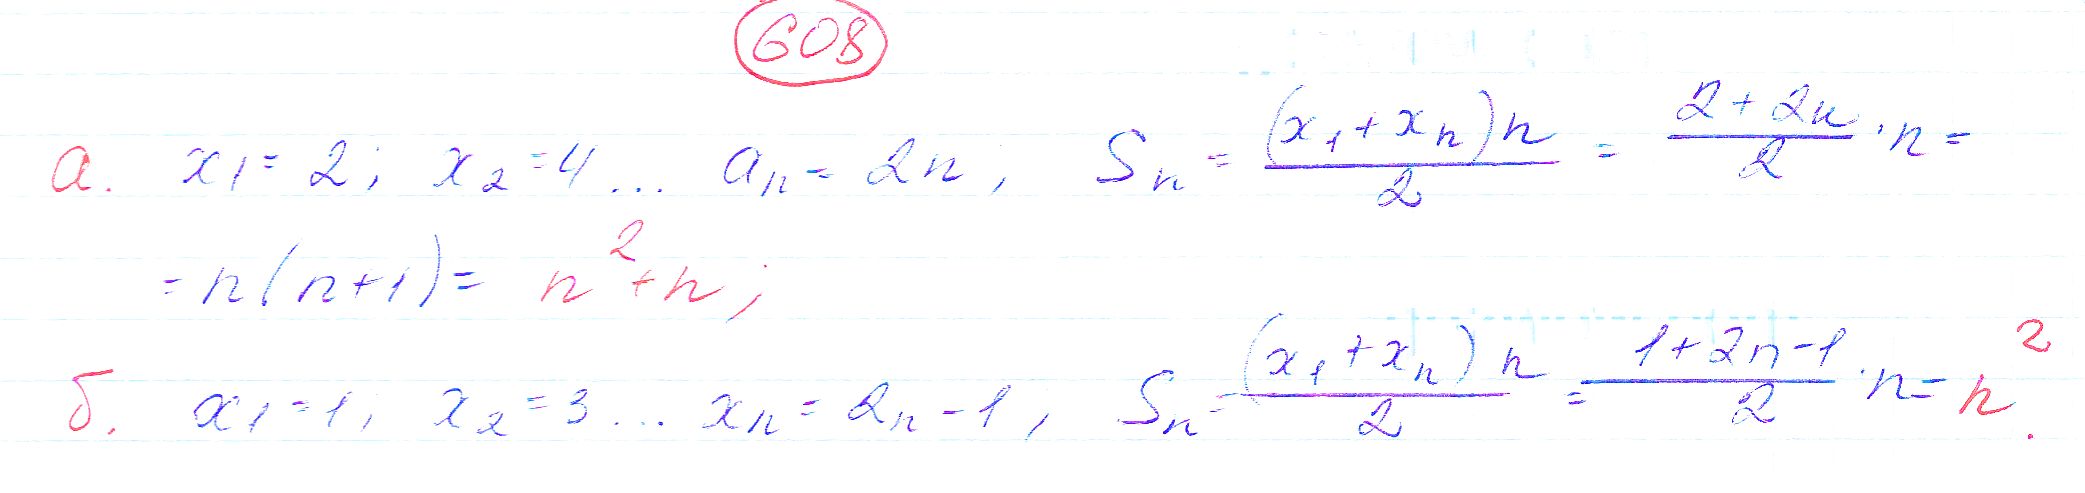 608
а. x₁ = 2; x₂ = 4 ... aₙ = 2n, Sₙ = (x₁ + xₙ)n / 2 = (2 + 2n) / 2 · n =
= n(n+1) = n² + n;
б. x₁ = 1; x₂ = 3 ... xₙ = 2n - 1, Sₙ = (x₁ + xₙ)n / 2 = (1 + 2n - 1) / 2 · n = n².